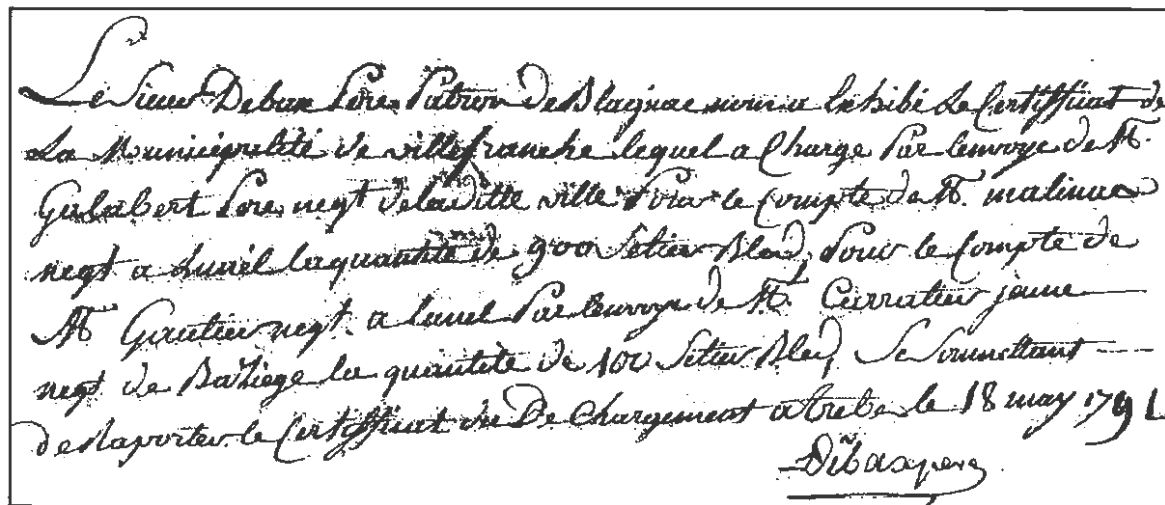 Le Sieur Debax Pere Patron de Blagnac nous a Exhibé Le Certifficat de
La Municipalité de villefranche lequel a Chargé Par lenvoye de M.
Galabert Pere negt de laditte ville Pour le Compte de M. malinas
negt a Lunel la quantité de 900 Setier Bled, Pour le Compte de
M Gautier negt. a lunel Par lenvoye de M. Carratier jeune
negt de Baziege la quantité de 100 Setier Bled, Se Soumettant
de Raporter le Certifficat du De Chargement a trebe le 18 may 1791
Debax pere